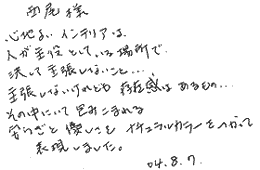 西尾 様
心地よいインテリアは、
人が主役としている場所で
決して主張しないこと…
主張しないけれども 存在感はあるもの…
その中にいて包みこまれる
安らぎと優しさを ナチュラルカラーをつかって
表現しました。
04.8.7.